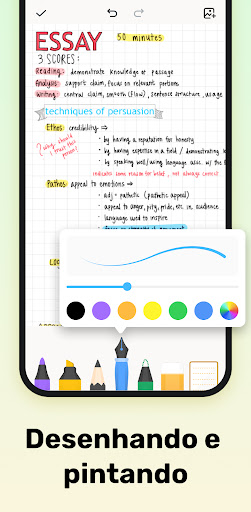 ESSAY 50 minutes
3 SCORES:
Reading: demonstrate knowledge of passage
Analysis: support claim, focus on relevant portions
Writing: central claim, smooth (flow), sentence structure, usage
techniques of persuasion
Ethos: credibility ⇒
? why should I trust this person?
· by having a reputation for honesty
· by having expertise in a field / demonstrating
· by speaking well/using language asic. w/ the
indicates some reason for belief, not always correct
Pathos: appeal to emotions →
· adj = pathetic (pathetic appeal)
· appeal to anger, pity, pride, etc. in audience
· language used to inspire
LO
Desenhando e
pintando